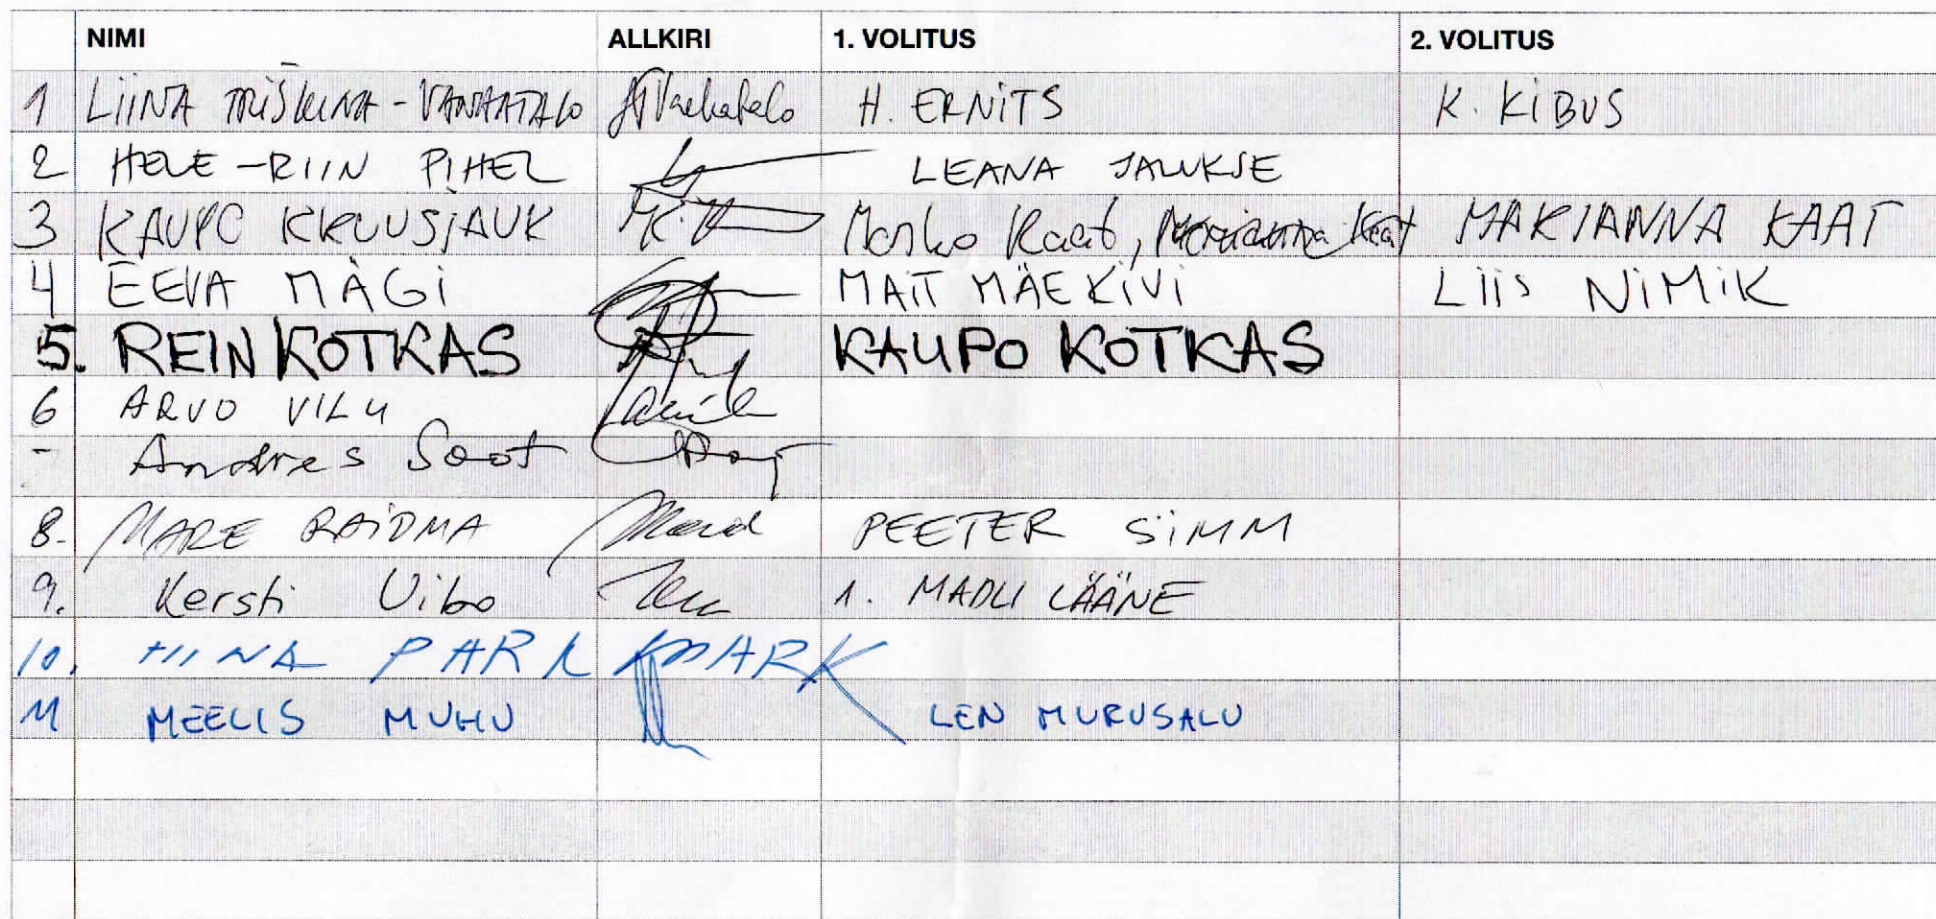 NIMI ALLKIRI 1. VOLITUS 2. VOLITUS
1 LIINA TRIŠKINA-VANHATALO H. ERNITS K. KIBUS
2 HELE-RIIN PIHEL LEANA JALUKSE
3 KAUPO KRUUSIAUK Marko Kaat, Marianna Kaat MARIANNA KAAT
4 EEVA MÄGI MAIT MÄEKIVI LIIS NIMIK
5. REIN KOTKAS KAUPO KOTKAS
6 ARVO VILU
- Andres Soot
8. MARE RAIDMA PEETER SIMM
9. Kersti Uibo 1. MADLI LÄÄNE
10. TIINA PARK
11 MEELIS MUHU LEN MURUSALU